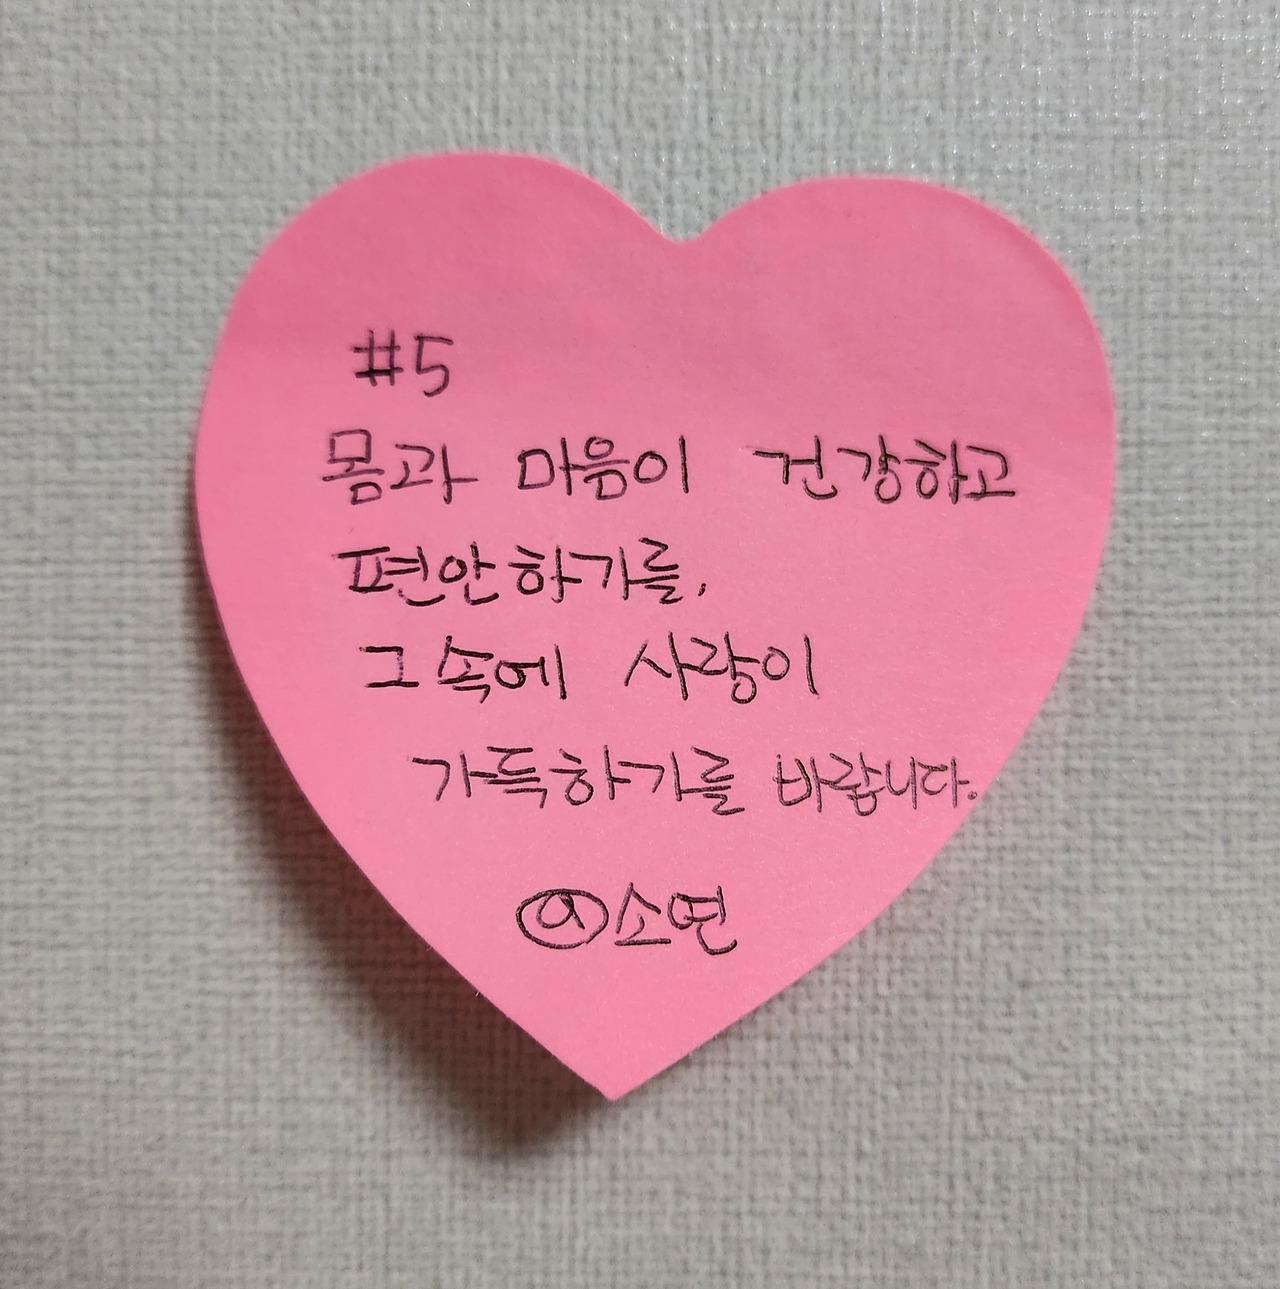 #5
몸과 마음이 건강하고
편안하기를,
그 속에 사랑이
가득하기를 바랍니다.
@소연